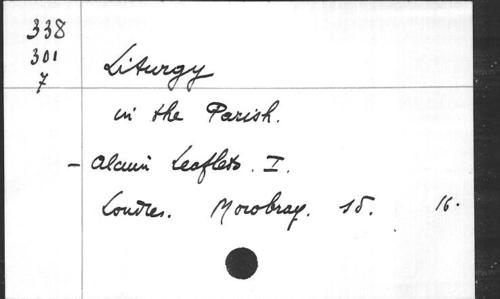 338
301
7
Liturgy
in the Parish.
- Alcuin Leaflets. I.
Londres. Mowbray. sd. 16.